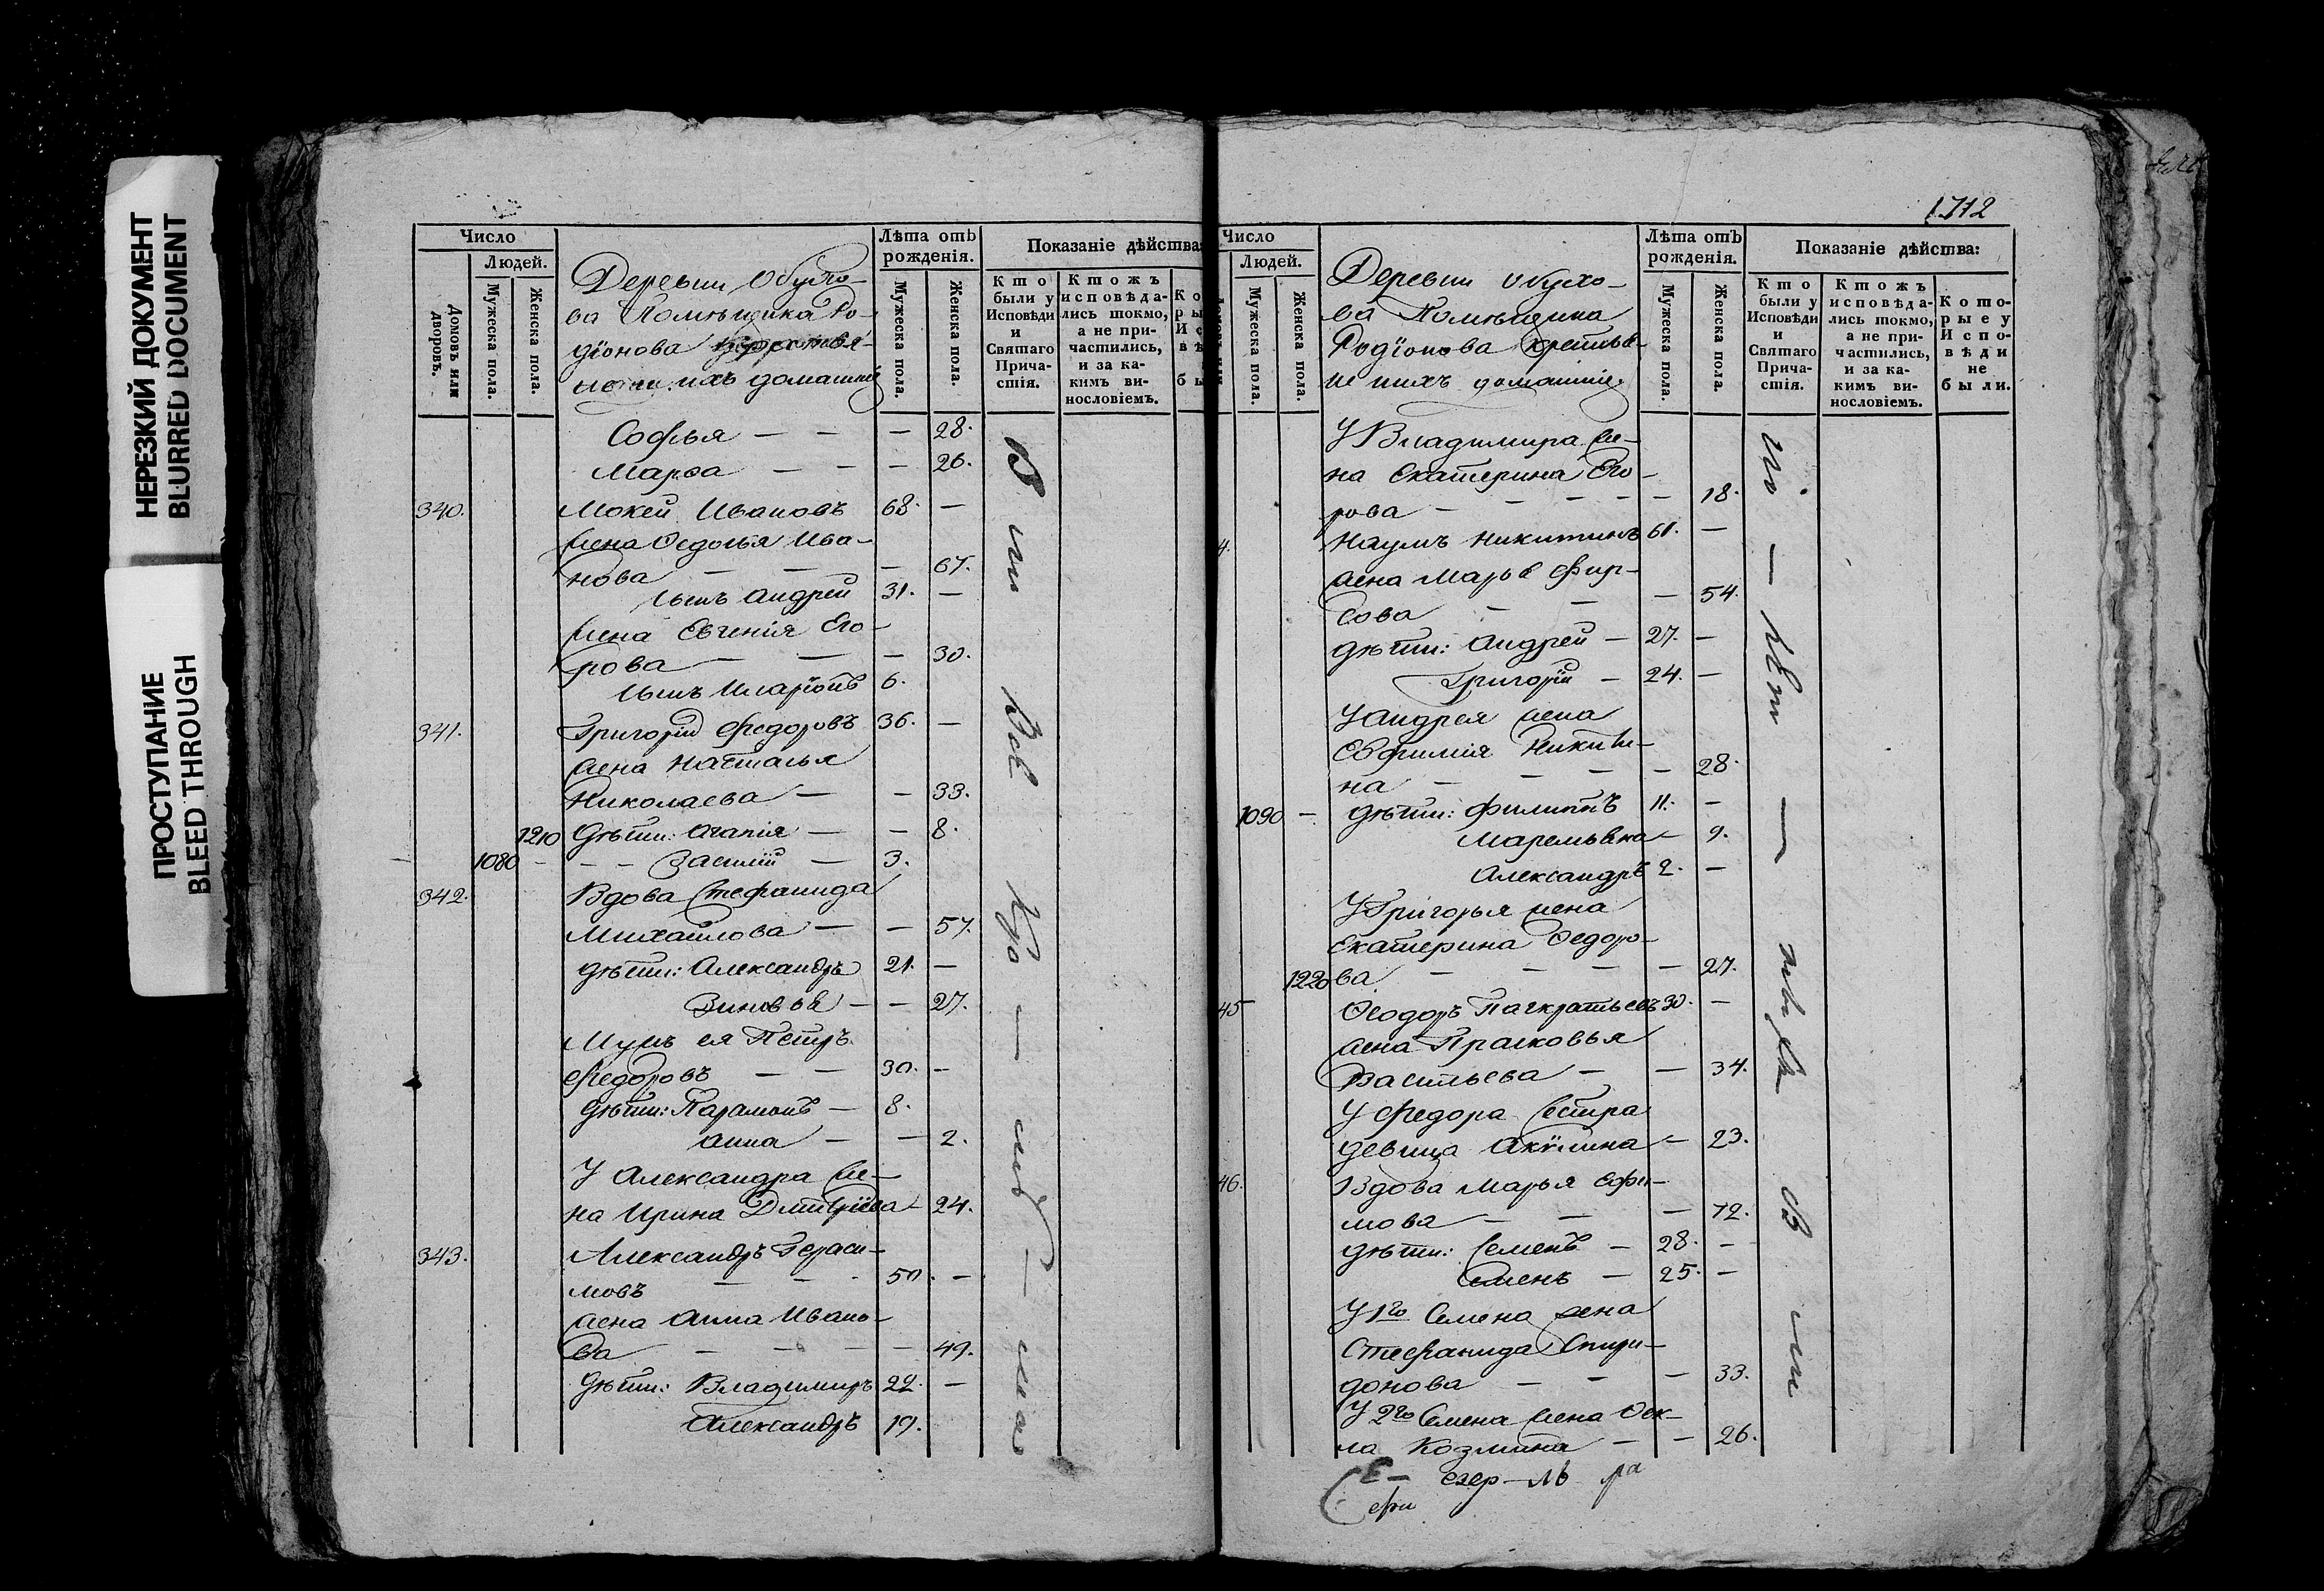 НЕРЕЗКИЙ ДОКУМЕНТ
BLURRED DOCUMENT
ПРОСТУПАНИЕ
BLEED THROUGH
Число
Людей.
Домовъ или дворовъ.
Мужеска пола.
Женска пола.
Деревни Обухо-
ва Помѣщика Ро-
діонова
домашніе
Лѣта отъ
рожденія.
Мужеска пола.
Женска пола.
Показаніе дѣйства
Кто
были у
Исповѣди
и
Святаго
Прича-
стія.
Ктожъ
исповѣда-
лись токмо,
а не при-
частились,
и за ка-
кимъ ви-
нословіемъ.
Софья — — — 28.
Марѳа — — — 26.
340. Мокей Ивановъ 68. —
жена Ѳедосья Ива-
нова — — — 67.
сынъ Андрей 31. —
жена Евгенія Его-
рова — — — 30.
сынъ Иларіонъ 6.
341. Григорій Федоровъ 36. —
жена Настасья
Николаева — — 33.
1210 дѣти: Агапія — — 8.
1080 — — — Василій — 3.
342. Вдова Стефанида
Михайлова — — 57.
дѣти: Александръ 21. —
Зиновья — — 27.
Мужъ ея Петръ
Федоровъ — — 30. —
дѣти: Парамонъ — 8.
Анна — — 2.
У Александра же-
на Ирина Дмитріева — 24.
343. Александръ Гераси-
мовъ — — 50. —
жена Анна Ивано-
ва — — — — 49.
дѣти: Владимиръ 22. —
Александръ 19.
1712
Число
Людей.
Мужеска пола.
Женска пола.
Деревни Обухо-
ва Помѣщика
Родіонова крестья-
не ихъ домашніе
Лѣта отъ
рожденія.
Мужеска пола.
Женска пола.
Показаніе дѣйства:
Кто
были у
Исповѣди
и
Святаго
Прича-
стія.
Ктожъ
исповѣда-
лись токмо,
а не при-
частились,
и за ка-
кимъ ви-
нословіемъ.
Кото-
рые у
Испо-
вѣди
не
были.
У Владимира же-
на Екатерина Его-
рова — — — — — 18.
4. Наумъ Никитинъ 61. —
жена Марья Фир-
сова — — — 54.
дѣти: Андрей — 27. —
Григорій — 24. —
У Андрея жена
Евфимія Никити-
на — — — — 28.
1090 — дѣти: Филиппъ 11. —
Маремьяна — 9.
Александръ 2. —
У Григорья жена
Екатерина Ѳедоро-
1220 ва — — — — 27.
45 Ѳеодоръ Панкратьевъ 30. —
жена Прасковья
Васильева — — 34.
У Федора сестра
девица Акулина — 23.
46. Вдова Марья Ефи-
мова — — — 72.
дѣти: Семенъ — 28. —
Семенъ — 25. —
У 1го Семена жена
Стефанида Спири-
донова — — — 33.
У 2го Семена жена Ѳек-
ла Козмина — — 26.